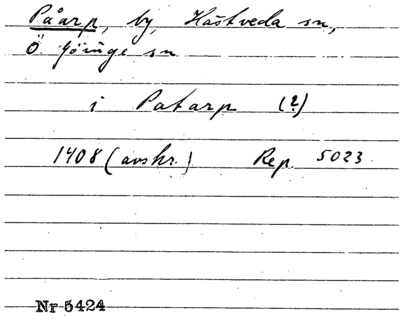 Påarp, by, Hästveda sn,
Ö Göinge sn
i Patarp (?)
1408 (avskr.) Rep. 5023
Nr 5424